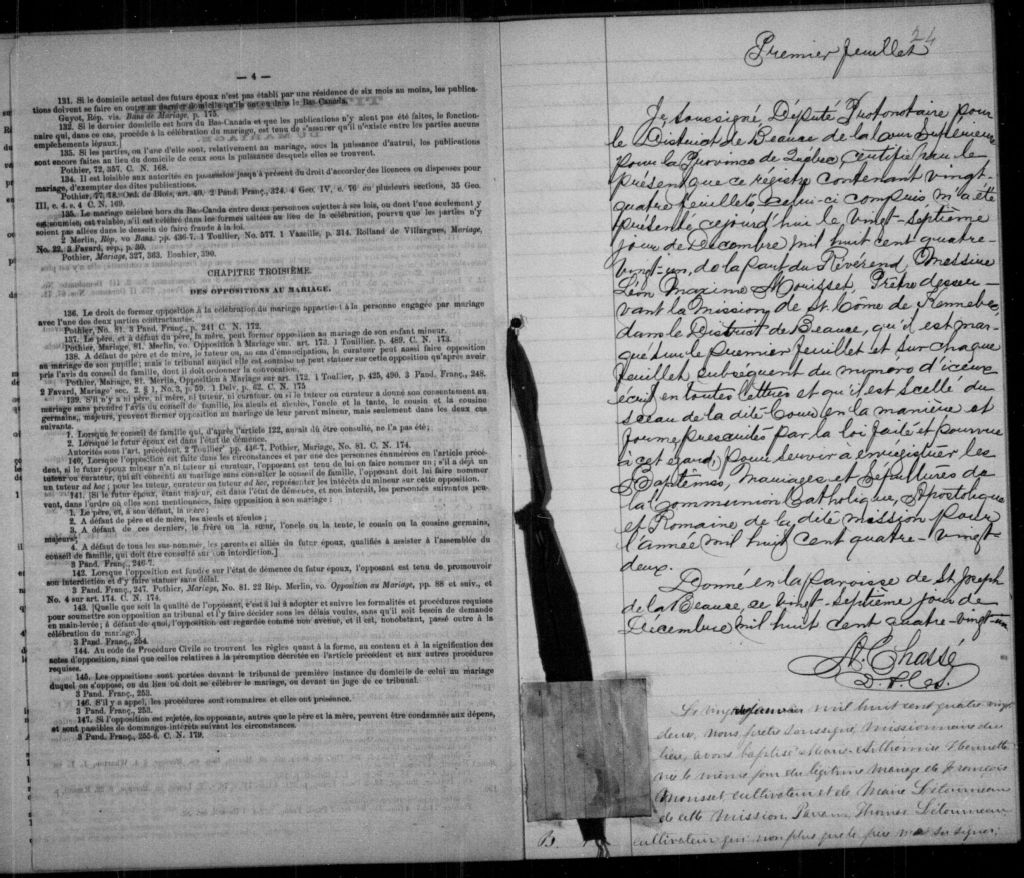 — 4 —
131. Si le domicile actuel des futurs époux n'est pas établi par une résidence de six mois au moins, les publica-
tions doivent se faire en outre au dernier domicile qu'ils ont eu dans le Bas-Canada.
Guyot, Rép. vis. Bans de Mariage, p. 175.
132. Si le dernier domicile est hors du Bas-Canada et que les publications n'y aient pas été faites, le fonction-
naire qui, dans ce cas, procède à la célébration du mariage, est tenu de s'assurer qu'il n'existe entre les parties aucuns
empêchements légaux.
133. Si les parties, ou l'une d'elle sont, relativement au mariage, sous la puissance d'autrui, les publications
sont encore faites au lieu du domicile de ceux sous la puissance desquels elles se trouvent.
Pothier, 72, 357. C. N. 168.
134. Il est loisible aux autorités en possession jusqu'à présent du droit d'accorder des licences ou dispenses pour
mariage, d'exempter des dites publications.
Pothier, 77, 78. Ord. de Blois, art. 40. 2 Pand. Franç., 324. 4 Geo. IV, c. 76 en plusieurs sections, 35 Geo.
III, c. 4. s. 4 C. N. 169.
135. Le mariage célébré hors du Bas-Canada entre deux personnes sujettes à ses lois, ou dont l'une seulement y
est soumise, est valable, s'il est célébré dans les formes usitées au lieu de la célébration, pourvu que les parties n'y
soient pas allées dans le dessein de faire fraude à la loi.
2 Merlin, Rép. vo Bans. pp. 436-7. 1 Toullier, No. 577. 1 Vazeille, p. 314. Rolland de Villargues, Mariage,
No. 22. 3 Favard, rép., p. 30.
Pothier, Mariage, 327, 363. Bouhier, 390.
CHAPITRE TROISIÈME.
DES OPPOSITIONS AU MARIAGE.
136. Le droit de former opposition à la célébration du mariage appartient à la personne engagée par mariage
avec l'une des deux parties contractantes.
Pothier, No. 81. 3 Pand. Franç., p. 241 C. N. 172.
137. Le père, et à défaut du père, la mère, peut former opposition au mariage de son enfant mineur.
Pothier, Mariage, 81. Merlin, vo. Opposition à Mariage sur. art. 173. 1 Toullier. p. 489. C. N. 173.
138. A défaut de père et de mère, le tuteur ou, au cas d'émancipation, le curateur peut aussi faire opposition
au mariage de son pupille; mais le tribunal auquel elle est soumise ne peut statuer sur cette opposition qu'après avoir
pris l'avis du conseil de famille, dont il doit ordonner la convocation.
Pothier, Mariage, 81. Merlin, Opposition à Mariage sur art. 172. 1 Toullier, p. 425, 490. 3 Pand. Franç., 248.
2 Favard, Mariage sec. 2. § 1, No. 3, p. 59. 1 Delv. p. 62. C. N. 175
139. S'il n'y a ni père, ni mère, ni tuteur, ni curateur, ou si le tuteur ou curateur a donné son consentement au
mariage sans prendre l'avis du conseil de famille, les aïeuls et aïeules, l'oncle et la tante, le cousin et la cousine
germains, majeurs, peuvent former opposition au mariage de leur parent mineur, mais seulement dans les deux cas
suivants.
1. Lorsque le conseil de famille qui, d'après l'article 122, aurait dû être consulté, ne l'a pas été;
2. Lorsque le futur époux est dans l'état de démence.
Autorités sous l'art. précédent. 2 Toullier pp. 446-7. Pothier, Mariage, No. 81. C. N. 174.
140. Lorsque l'opposition est faite dans les circonstances et par une des personnes énumérées en l'article précé-
dent, si le futur époux mineur n'a ni tuteur ni curateur, l'opposant est tenu de lui en faire nommer un; s'il a déjà un
tuteur ou curateur, qui ait consenti au mariage sans consulter le conseil de famille, l'opposant doit lui faire nommer
un tuteur ad hoc; pour les tuteur, curateur ou tuteur ad hoc, représenter les intérêts du mineur sur cette opposition.
141. [Si le futur époux, étant majeur, est dans l'état de démence, et non interdit, les personnes suivantes peu-
vent, dans l'ordre où elles sont mentionnées, faire opposition à son mariage:
1. Le père, et, à son défaut, la mère;
2. A défaut de père et de mère, les aïeuls et aïeules;
3. A défaut de ces dernier, le frère ou la sœur, l'oncle ou la tante, le cousin ou la cousine germains,
majeurs;
4. A défaut de tous les sus-nommés, les parents et alliés du futur époux, qualifiés à assister à l'assemblée du
conseil de famille, qui doit être consulté sur son interdiction.]
3 Pand. Franç., 246-7.
142. Lorsque l'opposition est fondée sur l'état de démence du futur époux, l'opposant est tenu de promouvoir
son interdiction et d'y faire statuer sans délai.
3 Pand. Franç., 247. Pothier, Mariage, No. 81. 22 Rép. Merlin, vo. Opposition au Mariage, pp. 88 et suiv., et
No. 4 sur art. 174. C. N. 174.
143. [Quelle que soit la qualité de l'opposant, c'est à lui à adopter et suivre les formalités et procédures requises
pour soumettre son opposition au tribunal et l'y faire décider sous les délais voulus, sans qu'il soit besoin de demande
en main-levée; à défaut de quoi, l'opposition est regardée comme non avenue, et il est, nonobstant, passé outre à la
célébration du mariage.]
3 Pand. Franç., 254.
144. Au code de Procédure Civile se trouvent les règles quant à la forme, au contenu et à la signification des
actes d'opposition, ainsi que celles relatives à la péremption décrétée en l'article précédent et aux autres procédures
requises.
145. Les oppositions sont portées devant le tribunal de première instance du domicile de celui au mariage
duquel on s'oppose, ou du lieu où doit se célébrer le mariage, ou devant un juge de ce tribunal.
3 Pand. Franç., 253.
146. S'il y a appel, les procédures sont sommaires et elles ont préséance.
3 Pand. Franç., 253.
147. Si l'opposition est rejetée, les opposants, autres que le père et la mère, peuvent être condamnés aux dépens,
et sont passibles de dommages-intérêts suivant les circonstances.
3 Pand. Franç., 255-6. C. N. 179.
24
Premier feuillet
Je, soussigné, Député Protonotaire pour
le District de Beauce de la Cour supérieure
pour la Province de Québec certifie par le
présent que ce registre contenant vingt-
quatre feuillets celui-ci compris m'a été
présenté cejourd'hui le vingt-septième
jour de Décembre mil huit cent quatre-
vingt-un, de la part du Révérend Messire
Léon Maxime Mousset, Prêtre desser-
vant la mission de St. Côme de Kennebec,
dans le District de Beauce, qu'il est mar-
qué sur le premier feuillet et sur chaque
feuillet subséquent du numéro d'iceux
écrit en toutes lettres et qu'il est scellé du
sceau de la dite Cour en la manière et
forme prescrites par la loi faite et pourvue
à cet égard, pour servir à enregistrer les
Baptêmes, Mariages et Sépultures de
la Communion Catholique, Apostolique
et Romaine de la dite mission pour
l'année mil huit cent quatre-vingt-
deux.
Donné en la paroisse de St Joseph
de la Beauce, ce vingt-septième jour de
Décembre mil huit cent quatre-vingt-un
A. Chassé
D. P. C. S.
Le vingt janvier mil huit cent quatre vingt
deux, nous, prêtre soussigné, missionnaire du
lieu, avons baptisé Marie
née le même jour du légitime mariage de François
cultivateur et de Marie Létourneau
de cette mission. Parrain, Thomas Létourneau
cultivateur qui non plus que le père n'a su signer;
B.